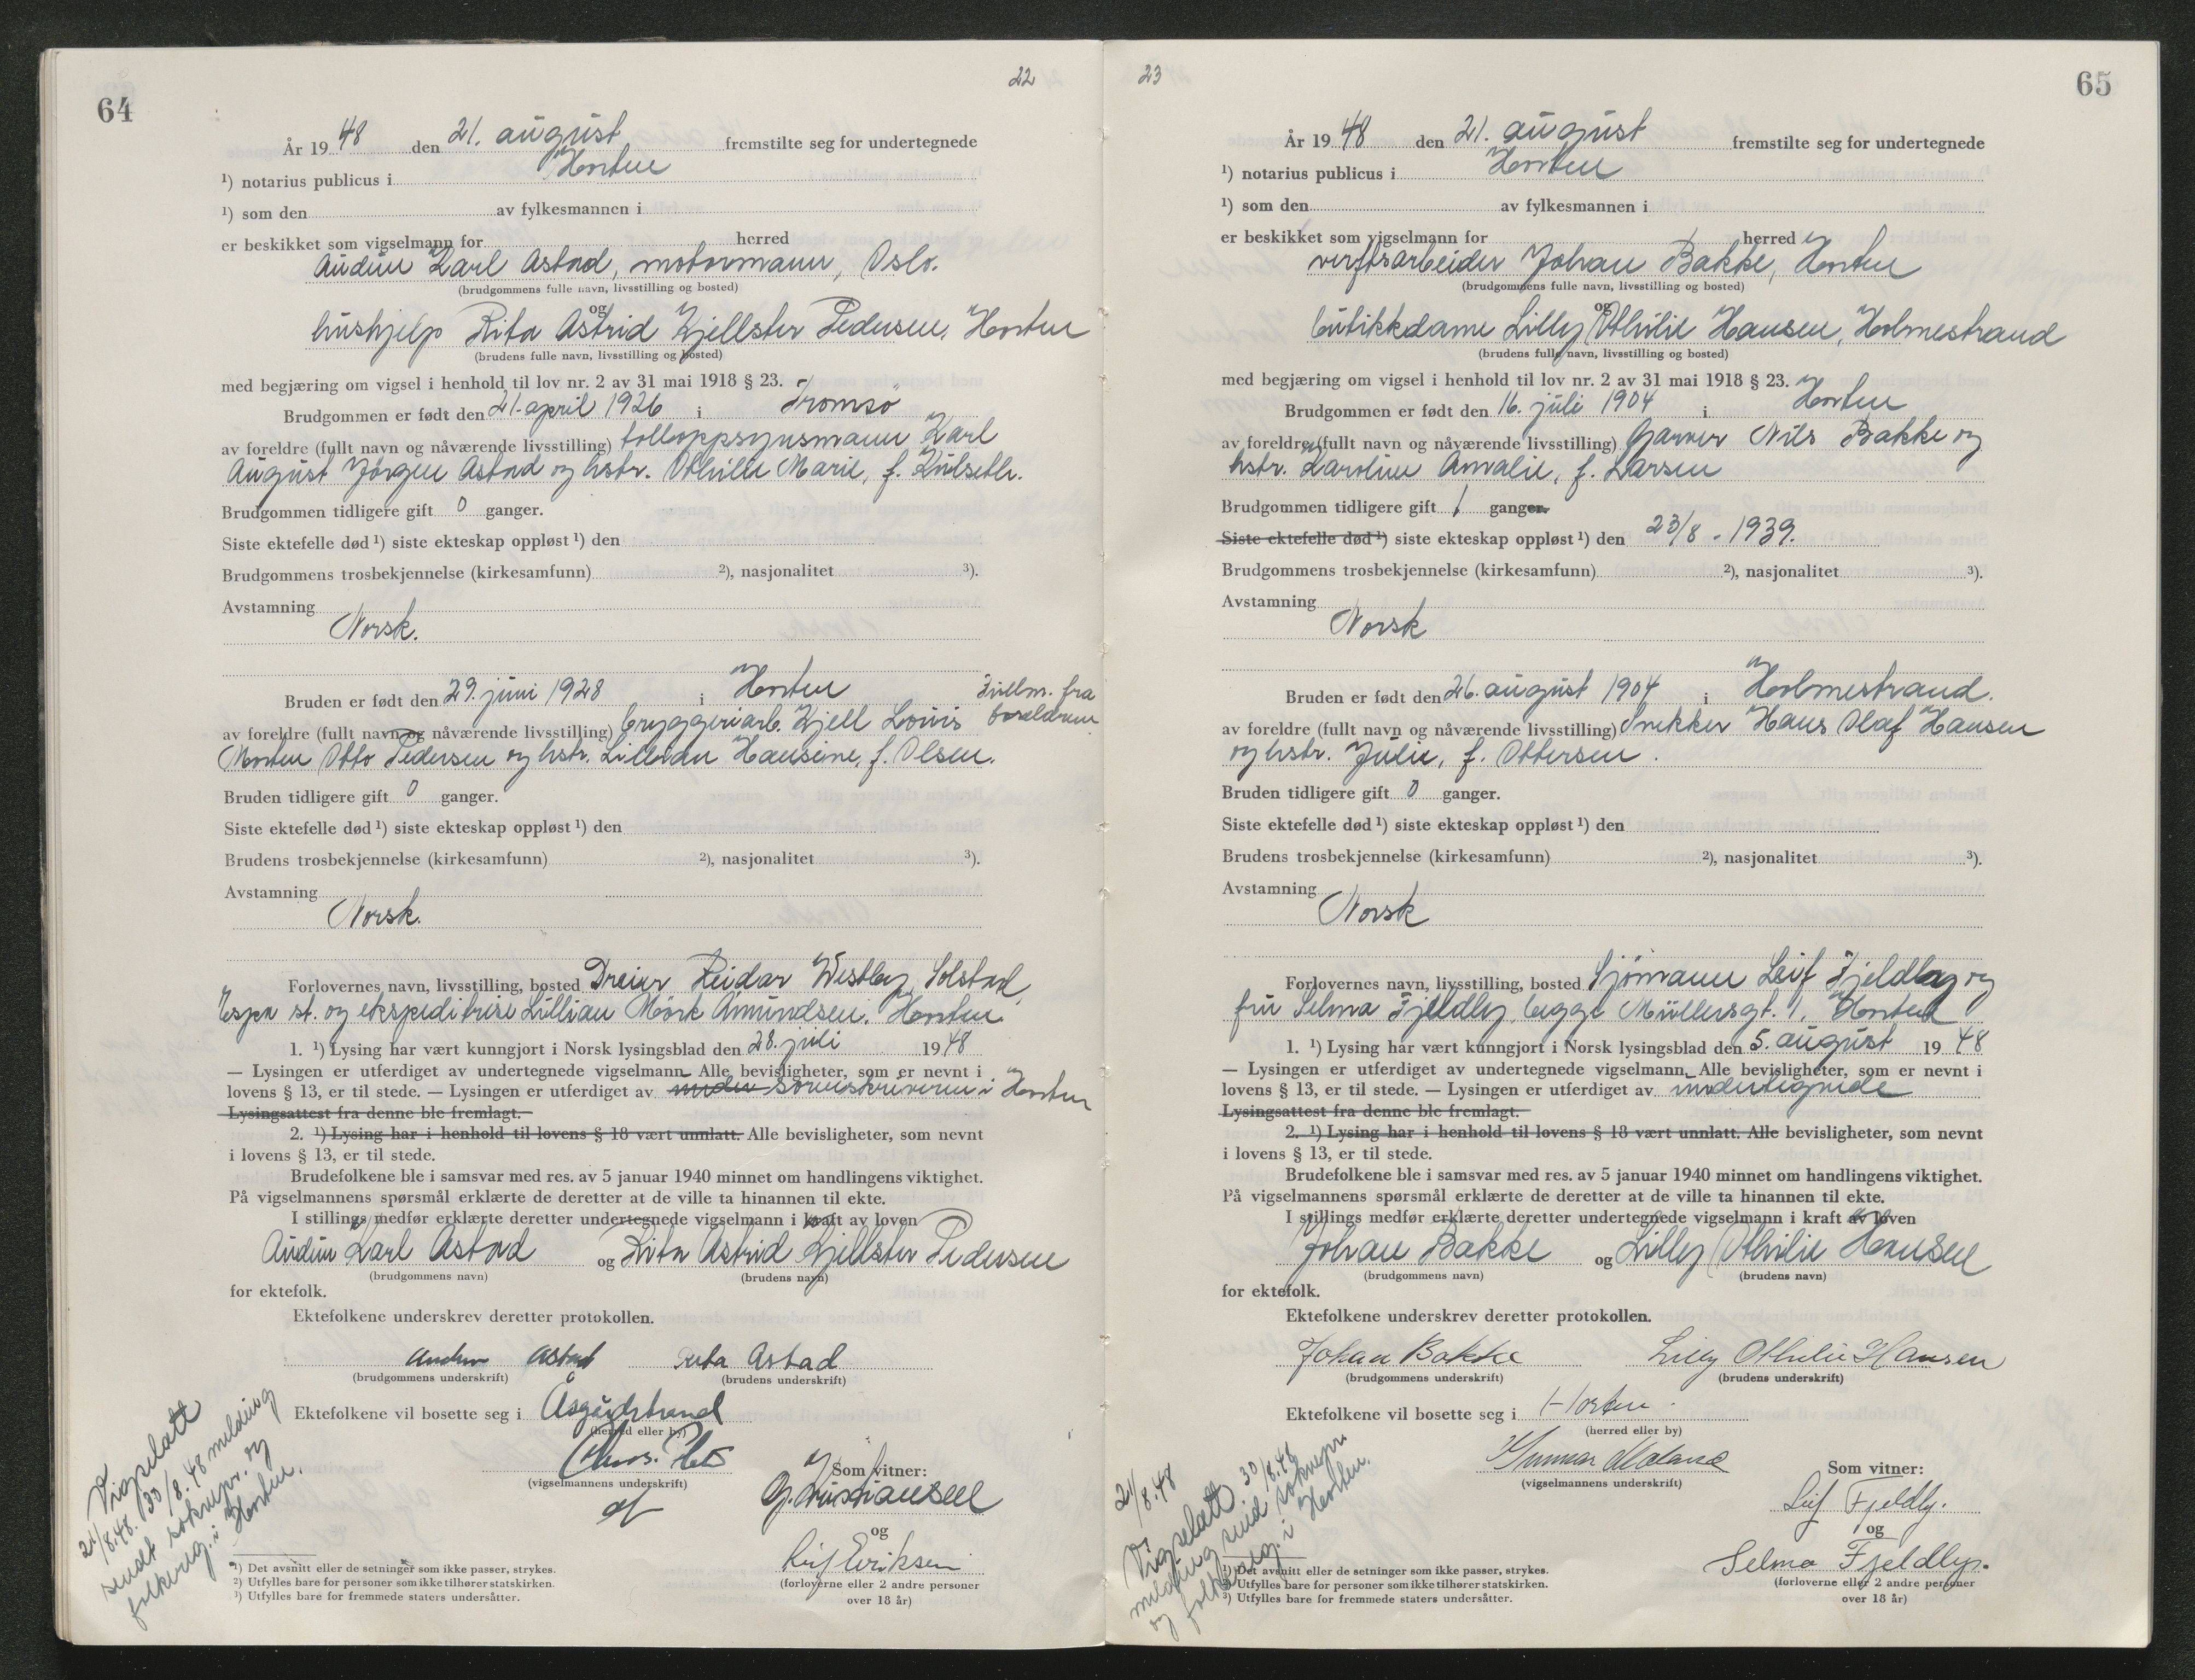 64
22
År 1948 den 21. august fremstilte seg for undertegnede
¹) notarius publicus i Horten
¹) som den av fylkesmannen i
er beskikket som vigselmann for herred
Audun Karl Astad, motormann, Oslo.
(brudgommens fulle navn, livsstilling og bosted)
og
hushjelp Rita Astrid Kjellster Pedersen, Horten
(brudens fulle navn, livsstilling og bosted)
med begjæring om vigsel i henhold til lov nr. 2 av 31 mai 1918 § 23.
Brudgommen er født den 21. april 1926 i Tromsö
av foreldre (fullt navn og nåværende livsstilling) tolloppsynsmann Karl
August Jörgen Astad og hstr. Othilie Marie, f. Kulseth.
Brudgommen tidligere gift 0 ganger.
Siste ektefelle død ¹) siste ekteskap oppløst ¹) den
Brudgommens trosbekjennelse (kirkesamfunn) ²), nasjonalitet ³).
Avstamning
Norsk.
Bruden er født den 29. juni 1928 i Horten
Tillm. fra foreldrene
av foreldre (fullt navn og nåværende livsstilling) bryggeriarb. Kjell Louis
Morten Otto Pedersen og hstr. Hansine, f. Olsen.
Bruden tidligere gift 0 ganger.
Siste ektefelle død ¹) siste ekteskap oppløst ¹) den
Brudens trosbekjennelse (kirkesamfunn) ²), nasjonalitet ³).
Avstamning
Norsk.
Forlovernes navn, livsstilling, bosted Dreier Reidar Westby, Solstad,
st. og ekspeditrise Lillian Mörk Amundsen, Horten
1. ¹) Lysing har vært kunngjort i Norsk lysingsblad den 28. juli 1948
— Lysingen er utferdiget av undertegnede vigselmann. Alle bevisligheter, som er nevnt i
lovens § 13, er til stede. — Lysingen er utferdiget av under sorenskriveren i Horten
Lysingsattest fra denne ble fremlagt.
2. ¹) Lysing har i henhold til lovens § 18 vært unnlatt. Alle bevisligheter, som nevnt
i lovens § 13, er til stede.
Brudefolkene ble i samsvar med res. av 5 januar 1940 minnet om handlingens viktighet.
På vigselmannens spørsmål erklærte de deretter at de ville ta hinannen til ekte.
I stillings medfør erklærte deretter undertegnede vigselmann i kraft av loven
Audun Karl Astad og Rita Astrid Kjellster Pedersen
(brudgommens navn) (brudens navn)
for ektefolk.
Ektefolkene underskrev deretter protokollen.
Audun Astad Rita Astad
(brudgommens underskrift) (brudens underskrift)
Ektefolkene vil bosette seg i Åsgårdstrand
(herred eller by)
(vigselmannens underskrift)
Som vitner:
G. Kristiansen
og
Leif Eriksen
(forloverne eller 2 andre personer
over 18 år)
Vigselatt
21/8.48. 30/8.48 melding
sendt soknepr. og
folkereg. i Horten.
¹) Det avsnitt eller de setninger som ikke passer, strykes.
²) Utfylles bare for personer som ikke tilhører statskirken.
³) Utfylles bare for fremmede staters undersåtter.
23
65
År 1948 den 21. august fremstilte seg for undertegnede
¹) notarius publicus i Horten
¹) som den av fylkesmannen i
er beskikket som vigselmann for herred
verftsarbeider Johan Bakke, Horten
(brudgommens fulle navn, livsstilling og bosted)
og
butikkdame Lilly Othilie Hansen, Holmestrand
(brudens fulle navn, livsstilling og bosted)
med begjæring om vigsel i henhold til lov nr. 2 av 31 mai 1918 § 23.
Brudgommen er født den 16. juli 1904 i Horten
av foreldre (fullt navn og nåværende livsstilling) Garver Nils Bakke og
hstr. Karoline Amalie, f. Larsen
Brudgommen tidligere gift 1 ganger.
Siste ektefelle død ¹) siste ekteskap oppløst ¹) den 23/8 - 1939.
Brudgommens trosbekjennelse (kirkesamfunn) ²), nasjonalitet ³).
Avstamning
Norsk
Bruden er født den 26. august 1904 i Holmestrand.
av foreldre (fullt navn og nåværende livsstilling) Snekker Hans Olaf Hansen
og hstr. Julie, f. Ottersen.
Bruden tidligere gift 0 ganger.
Siste ektefelle død ¹) siste ekteskap oppløst ¹) den
Brudens trosbekjennelse (kirkesamfunn) ²), nasjonalitet ³).
Avstamning
Norsk
Forlovernes navn, livsstilling, bosted Sjömann Leif Fjeldby og
fru Selma Fjeldly, begge Müllersgt. 1, Horten
1. ¹) Lysing har vært kunngjort i Norsk lysingsblad den 5. august 1948
— Lysingen er utferdiget av undertegnede vigselmann. Alle bevisligheter, som er nevnt i
lovens § 13, er til stede. — Lysingen er utferdiget av undertegnede
Lysingsattest fra denne ble fremlagt.
2. ¹) Lysing har i henhold til lovens § 18 vært unnlatt. Alle bevisligheter, som nevnt
i lovens § 13, er til stede.
Brudefolkene ble i samsvar med res. av 5 januar 1940 minnet om handlingens viktighet.
På vigselmannens spørsmål erklærte de deretter at de ville ta hinannen til ekte.
I stillings medfør erklærte deretter undertegnede vigselmann i kraft av loven
Johan Bakke og Lilly Othilie Hansen
(brudgommens navn) (brudens navn)
for ektefolk.
Ektefolkene underskrev deretter protokollen.
Johan Bakke Lilly Othilie Hansen
(brudgommens underskrift) (brudens underskrift)
Ektefolkene vil bosette seg i Horten.
(herred eller by)
Gunnar
(vigselmannens underskrift)
Som vitner:
Leif Fjeldly.
og
Selma Fjeldly.
(forloverne eller 2 andre personer
over 18 år)
21/8.48
Vigselatt 30/8.48
melding send soknepr.
og folkereg. i Horten.
¹) Det avsnitt eller de setninger som ikke passer, strykes.
²) Utfylles bare for personer som ikke tilhører statskirken.
³) Utfylles bare for fremmede staters undersåtter.